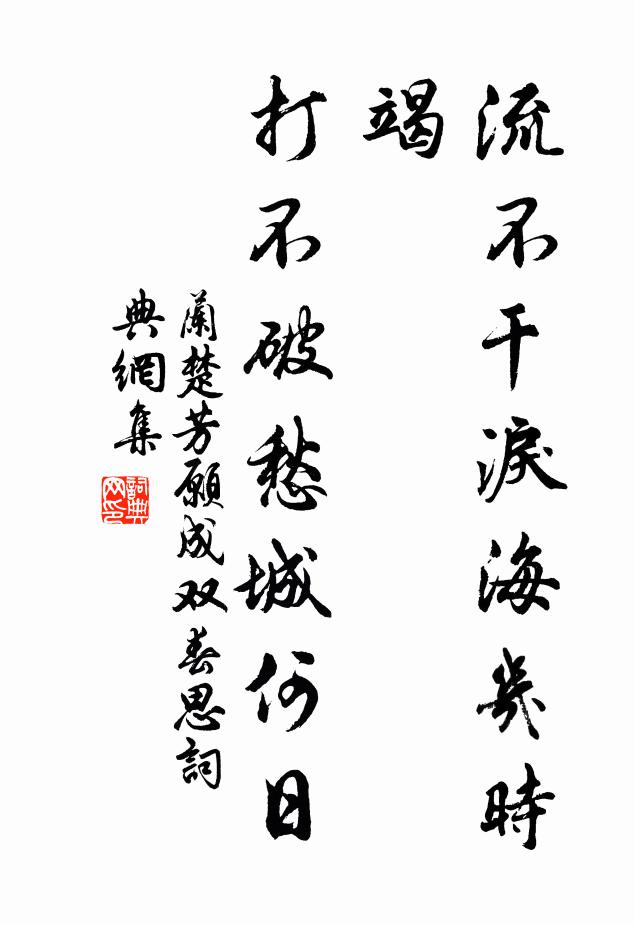 流不干淚海幾時
竭
打不破愁城何日
蘭楚芳願成双春思詞
典網集
詞典
网印